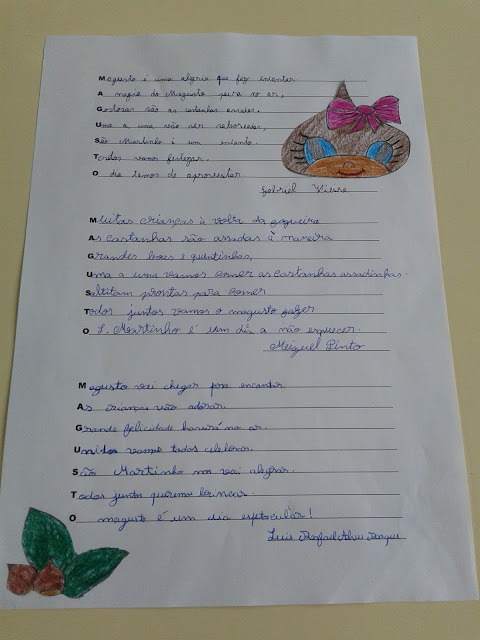 Magusto é uma alegria que fez encantar
A magia do Magusto paira no ar,
Gostosas são as castanhas assadas.
Uma a uma vão ser saboreadas,
São Martinho é um
Todos vamos festejar.
O dia temos de aproveitar
Gabriel Vieira
Muitas crianças à volta da fogueira
As castanhas são assadas à maneira
Grandes boas e quentinhas,
Uma a uma vamos comer as castanhas assadinhas.
Saltitam prontas para comer
Todos juntos vamos o magusto fazer
O S. Martinho é um dia a não esquecer.
Meiguel Pinto
Magusto vai chegar pra encantar.
As crianças vão adorar.
Grande felicidade haverá no ar.
Unidos vamos todos celebrar.
São Martinho nos vai alegrar.
Todos juntos queremos brincar.
O magusto é um dia espetacular!
Luís Rafael Alves